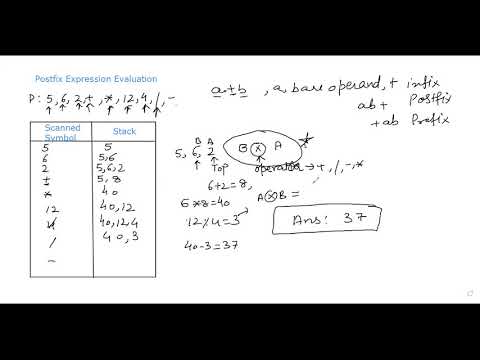 Postfix Expression Evaluation
P: 5, 6, 2, +, *, 12, 4, /, -
a + b , a, b are operand, + infix
ab + Postfix
+ ab Prefix
Scanned Symbol Stack
5 5
6 5,6
2 5,6,2
+ 5, 8
* 40
12 40,12
4 40,12,4
/ 40,3
-
B A
5, 6, 2
Top
B A
operator → +, /, -, *
6+2=8,
5*8=40
A B =
12/4=3
40-3=37
Ans: 37